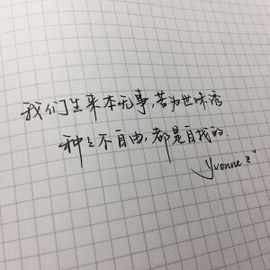 我们生来本无事，苦为世味浓
种种不自由，都是自找的.
yvonne z"